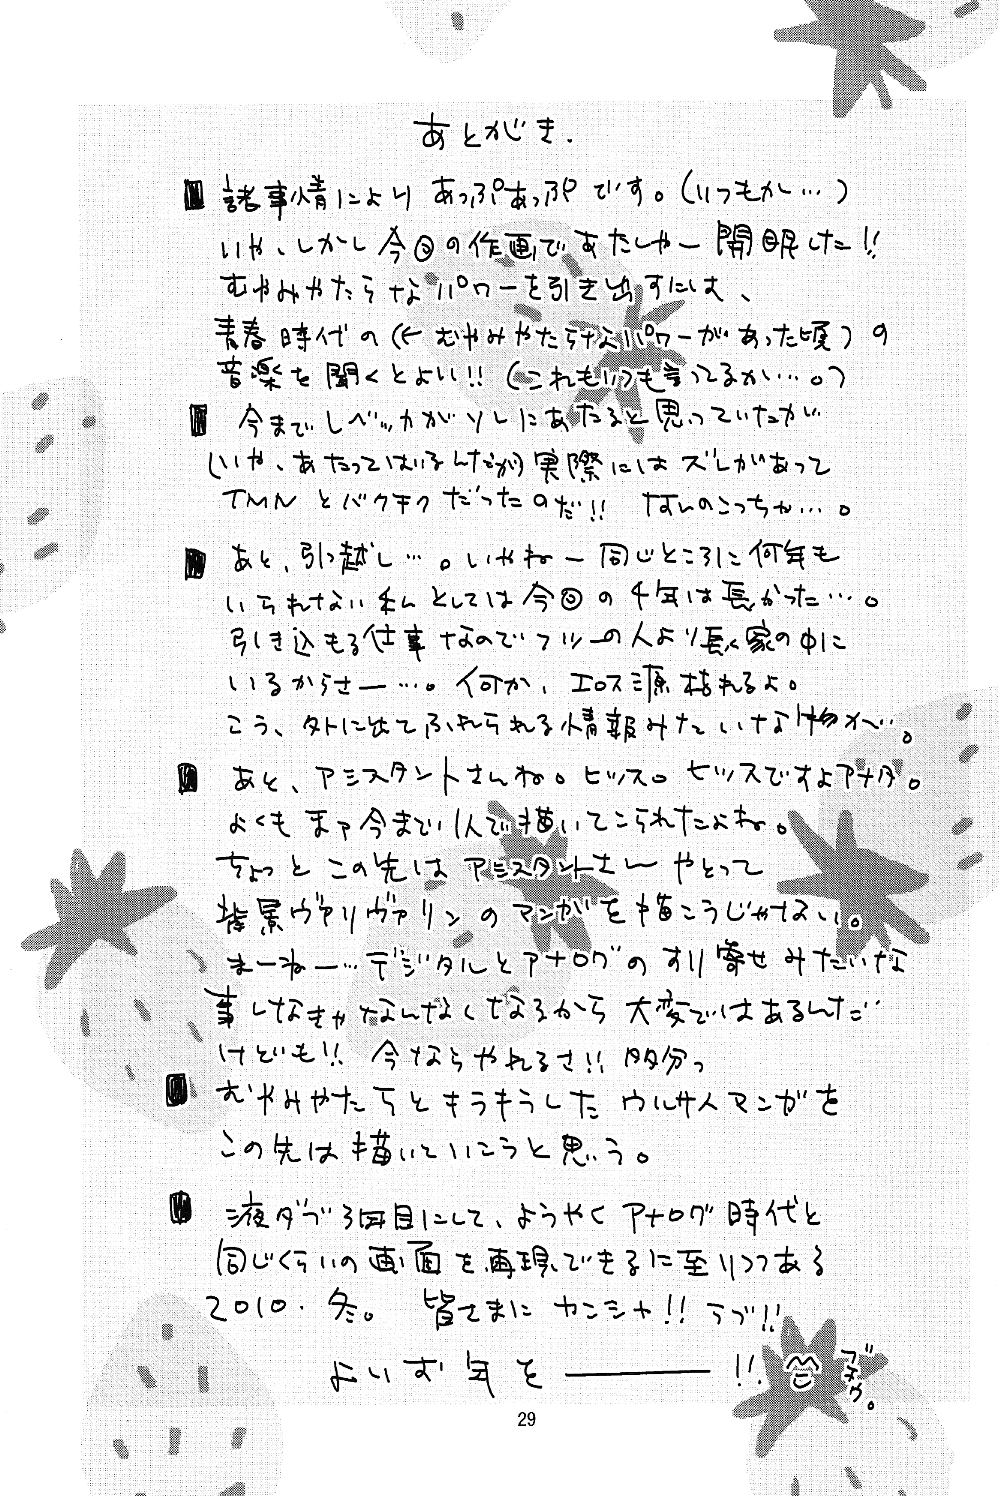 あとがき.
諸事情により あっぷあっぷ です。(いつもか…)
いや、しかし 今回の作画で あたしゃー 開眼した!!
むやみやたらな パワーを引き出すには、
青春時代の(← むやみやたらなパワーがあった頃)の
音楽を聞くとよい!!(これもいつも言ってるか…。)
今までレベッカがソレにあたると思っていたが
(いや、あたってはいるんだが)実際にはズレがあって
TMNとバクチクだったのだ!! なんのこっちゃ…。
あと、引っ越し…。いやねー同じところに何年も
いられない私としては今回の4年は長かった…。
引き込もる仕事なのでフツーの人より長く家の中に
いるからさー…。何か、エロス源枯れるよ。
こう、外に出てふれられる情報みたいな物が…。
あと、アシスタントさんね。ヒッス。ヒッスですよアナタ。
よくもまァ今まで1人で描いてこられたよね。
ちょっとこの先はアシスタントさんやとって
背景ヴァリヴァリンのマンガを描こうじゃない。
まーねー…デジタルとアナログのすり寄せみたいな
事しなきゃなんなくなるから大変ではあるんだ
けども!! 今ならやれるさ!! 多分っ
むやみやたらとキラキラしたウルサイマンガを
この先は描いていこうと思う。
液タブ3回目にして、ようやくアナログ時代と
同じくらいの画面を再現できるに至りつつある
2010.冬。 皆さまに カンシャ!! ラブ!!
よいお年を――――!!
ブチゥ。
29